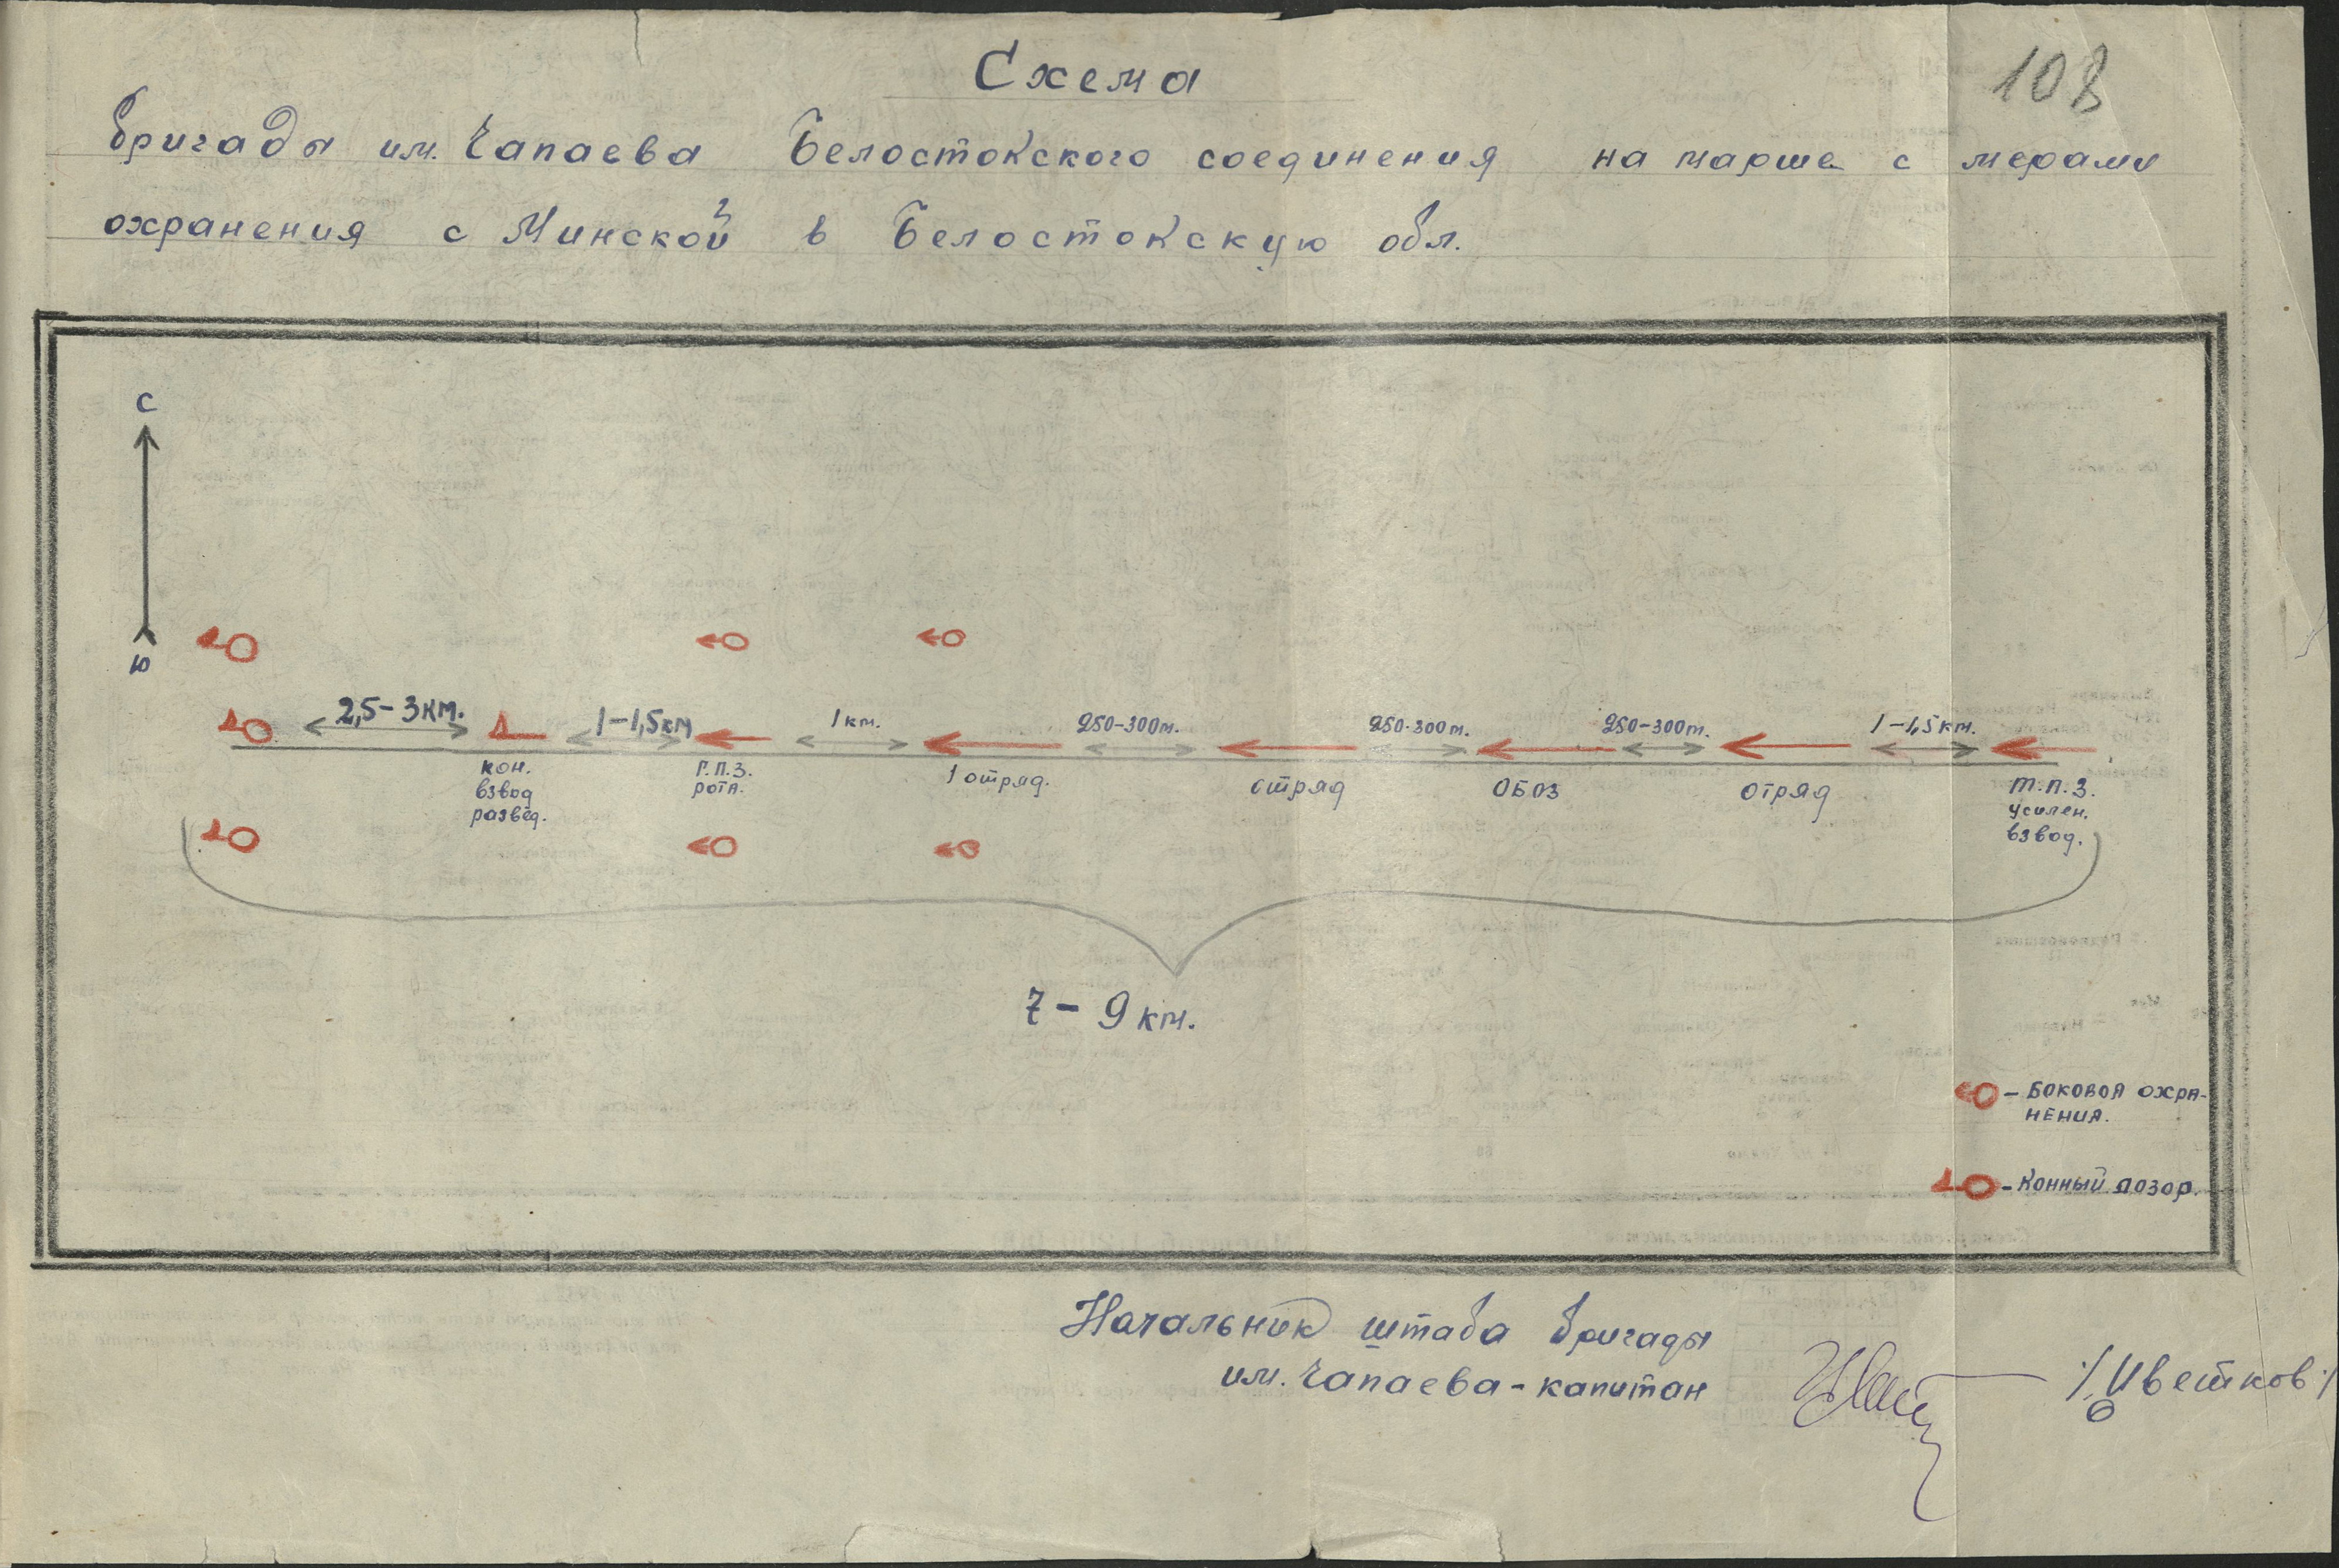 108
Схема
бригады им. Чапаева Белостокского соединения на марше с мерами
охранения с Минской в Белостокскую обл.
С
Ю
2,5-3 км.
1-1,5 км
1 км.
250-300 м.
250-300 м.
250-300 м.
1-1,5 км.
кон.
взвод
развед.
Г.П.З.
рота.
1 отряд.
отряд
ОБОЗ
отряд
Т.П.З.
усилен.
взвод.
7-9 км.
- Боковоя охра-
нения.
- Конный дозор.
Начальник штаба бригады
им. Чапаева - капитан
/Цветков/